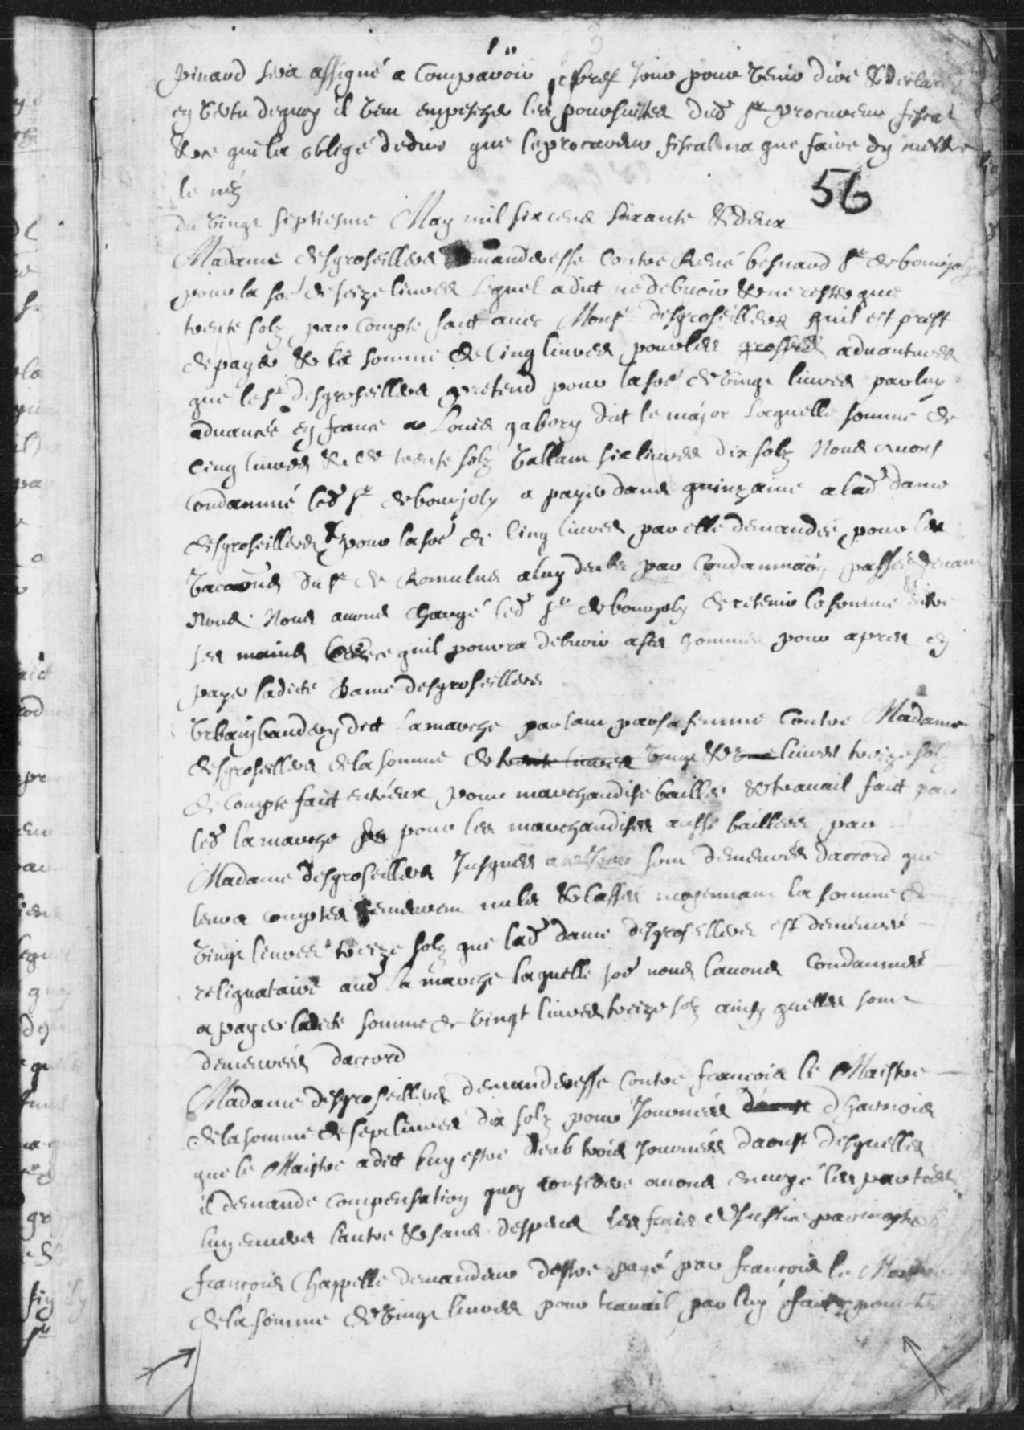 pinard sera assigné a Comparoir pour venir dire & declarer
en vertu dequoy il vem empescher les poursuites dud sr procureur fiscal
& ce qui la obligé dedire que le procureur fiscal na que faire dy mettre
le néz
56
du vingt septiesme May mil six cens soixante & deux
Madame desgroseillers demanderesse contre René besnard sr de bourjoly
pour la soe de seize livres lequel a dit ne debvoir & ne reste que
trente solz par compte fait avec Monsr desgroseillers quil est prest
de payer & la somme de Cinq livres pour les grosses advantures
que le sr desgroseillers pretend pour la soe de vingt livres par luy
advancée en france a Louis gabory dit le major Laquelle somme de
Cinq livres & de trente solz vallant six livres dix solz Nous avons
Condamné led sr de bourjoly a payer dans quinzaine a lad dame
desgroseillers & pour la soe de Cinq livres par elle demandée pour les
vacaons du sr de Romulus a luy deubs par Condamnaon passée devant
Nous Nous avons chargé led sr de bourjoly de retenir la somme
ses mains ce quil pourra debvoir pour apres en
payer ladicte Dame desgroseillers
Urbain baudry dit Lamarche parlant par sa femme Contre Madame
desgroseillers de la somme de trente livres vingt & une livres treize solz
de compte fait entreux pour marchandise baillée & travail fait par
led lamarche pour les marchandises aussi baillées par
Madame desgroseillers Jusques a sont demeurés daccord que
leurs comptes demeurent nuls & cassés moyennant la somme de
vingt livres treize solz que lad dame desgroseillers est demeurée
reliquataire aud la marche laquelle soe nous lavons Condamnée
a payer ladicte somme de vingt livres treize solz ainsy quelles sont
demeurées daccord
Madame desgroseillers demanderesse contre francois le Maistre
de la somme de sept livres dix solz pour Journées dharnois
que le Maistre a dit luy estre deub trois Journées daoust desquelles
il demande compensation quoy consideré avons envoyé les parties
lun envers lautre & sans despens les frais de Justice
francois Chappelle demandeur destre payé par francois le Maistre
de la somme de vingt livres pour travail par luy fait pour